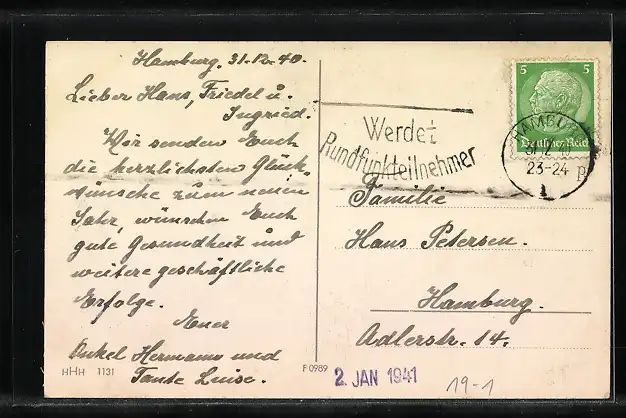 Hamburg, 31.12.40.
Lieber Hans, Friedel u.
Ingried.
Wir senden Euch
die herzlichsten Glück-
wünsche zum neuen
Jahr, wünschen Euch
gute Gesundheit und
weitere geschäftliche
Erfolge.
Euer
Onkel Hermann und
Tante Luise.
HHH 1131
F 0989
Werdet
Rundfunkteilnehmer
5 5
Deutsches Reich
HAMBURG
31.12.40
23-24
1 p
Familie
Hans Petersen.
Hamburg.
Adlerstr. 14.
2. JAN 1941
19-1